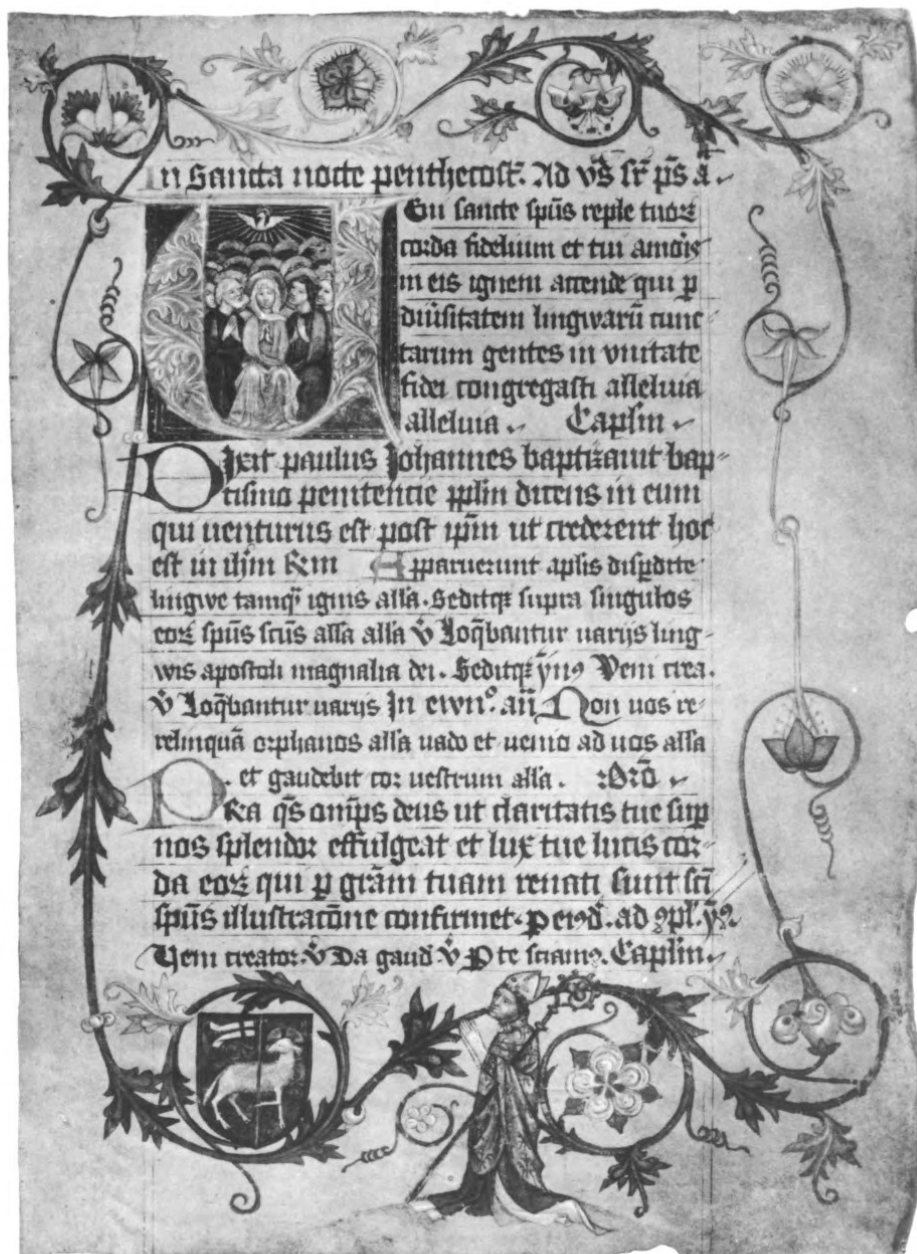 In Sancta nocte penthecost̄. Ad vs̄ sr̄ ps̄ ā
Eni sancte spūs reple tuoꝝ
corda fidelium et tui amoīs
in eis ignem accende qui ꝑ
diūsitatem lingwarū cunc
tarum gentes in vnitate
fidei congregasti alleluia
alleluia Caplm
Dixit paulus Johannes baptizauit bap-
tismo penitencie pplm dicens in eum
qui uenturus est post ipm̄ ut crederent hoc
est in ihm̄ Apparuerunt aplis disꝑdite
lingwe tamqͣ ignis alla. Seditqꝫ supra singulos
eoꝝ spūs scūs alla alla ℣ Loqbantur uarijs ling-
wis apostoli magnalia dei. Seditqꝫ ymꝰ Veni crea.
℣ Loqbantur uarijs In ewnº. an̄ Non uos re-
relinquā orphanos alla uado et uenio ad uos alla
et gaudebit cor uestrum alla. Orō
Pra qs̄ omps̄ deus ut claritatis tue suꝑ
nos splendor effulgeat et lux tue lucis cor-
da eoꝝ qui ꝑ grām tuam renati sunt scī
spūs illustracōne confirmet. ad ꝯpl. ymꝰ
Veni creator. ℣ Da gaud ℣ P te sciamꝰ. Caplm